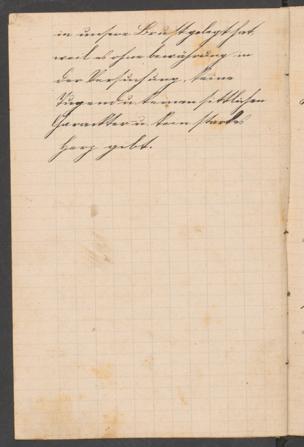 in unsere Brust gelegt hat,
weil es ohne bewährung in
der Versuchung, keine
Tugend u. keinen sittlichen
Charakter u. kein starkes
Herz gebt.